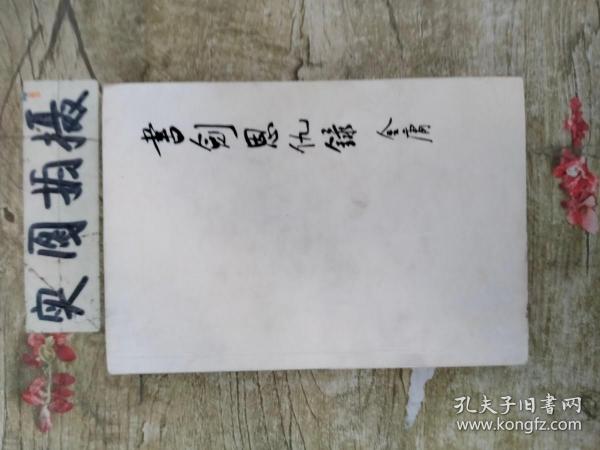 書劍恩仇錄 金庸
实图拍摄
孔夫子旧书网
www.kongfz.com